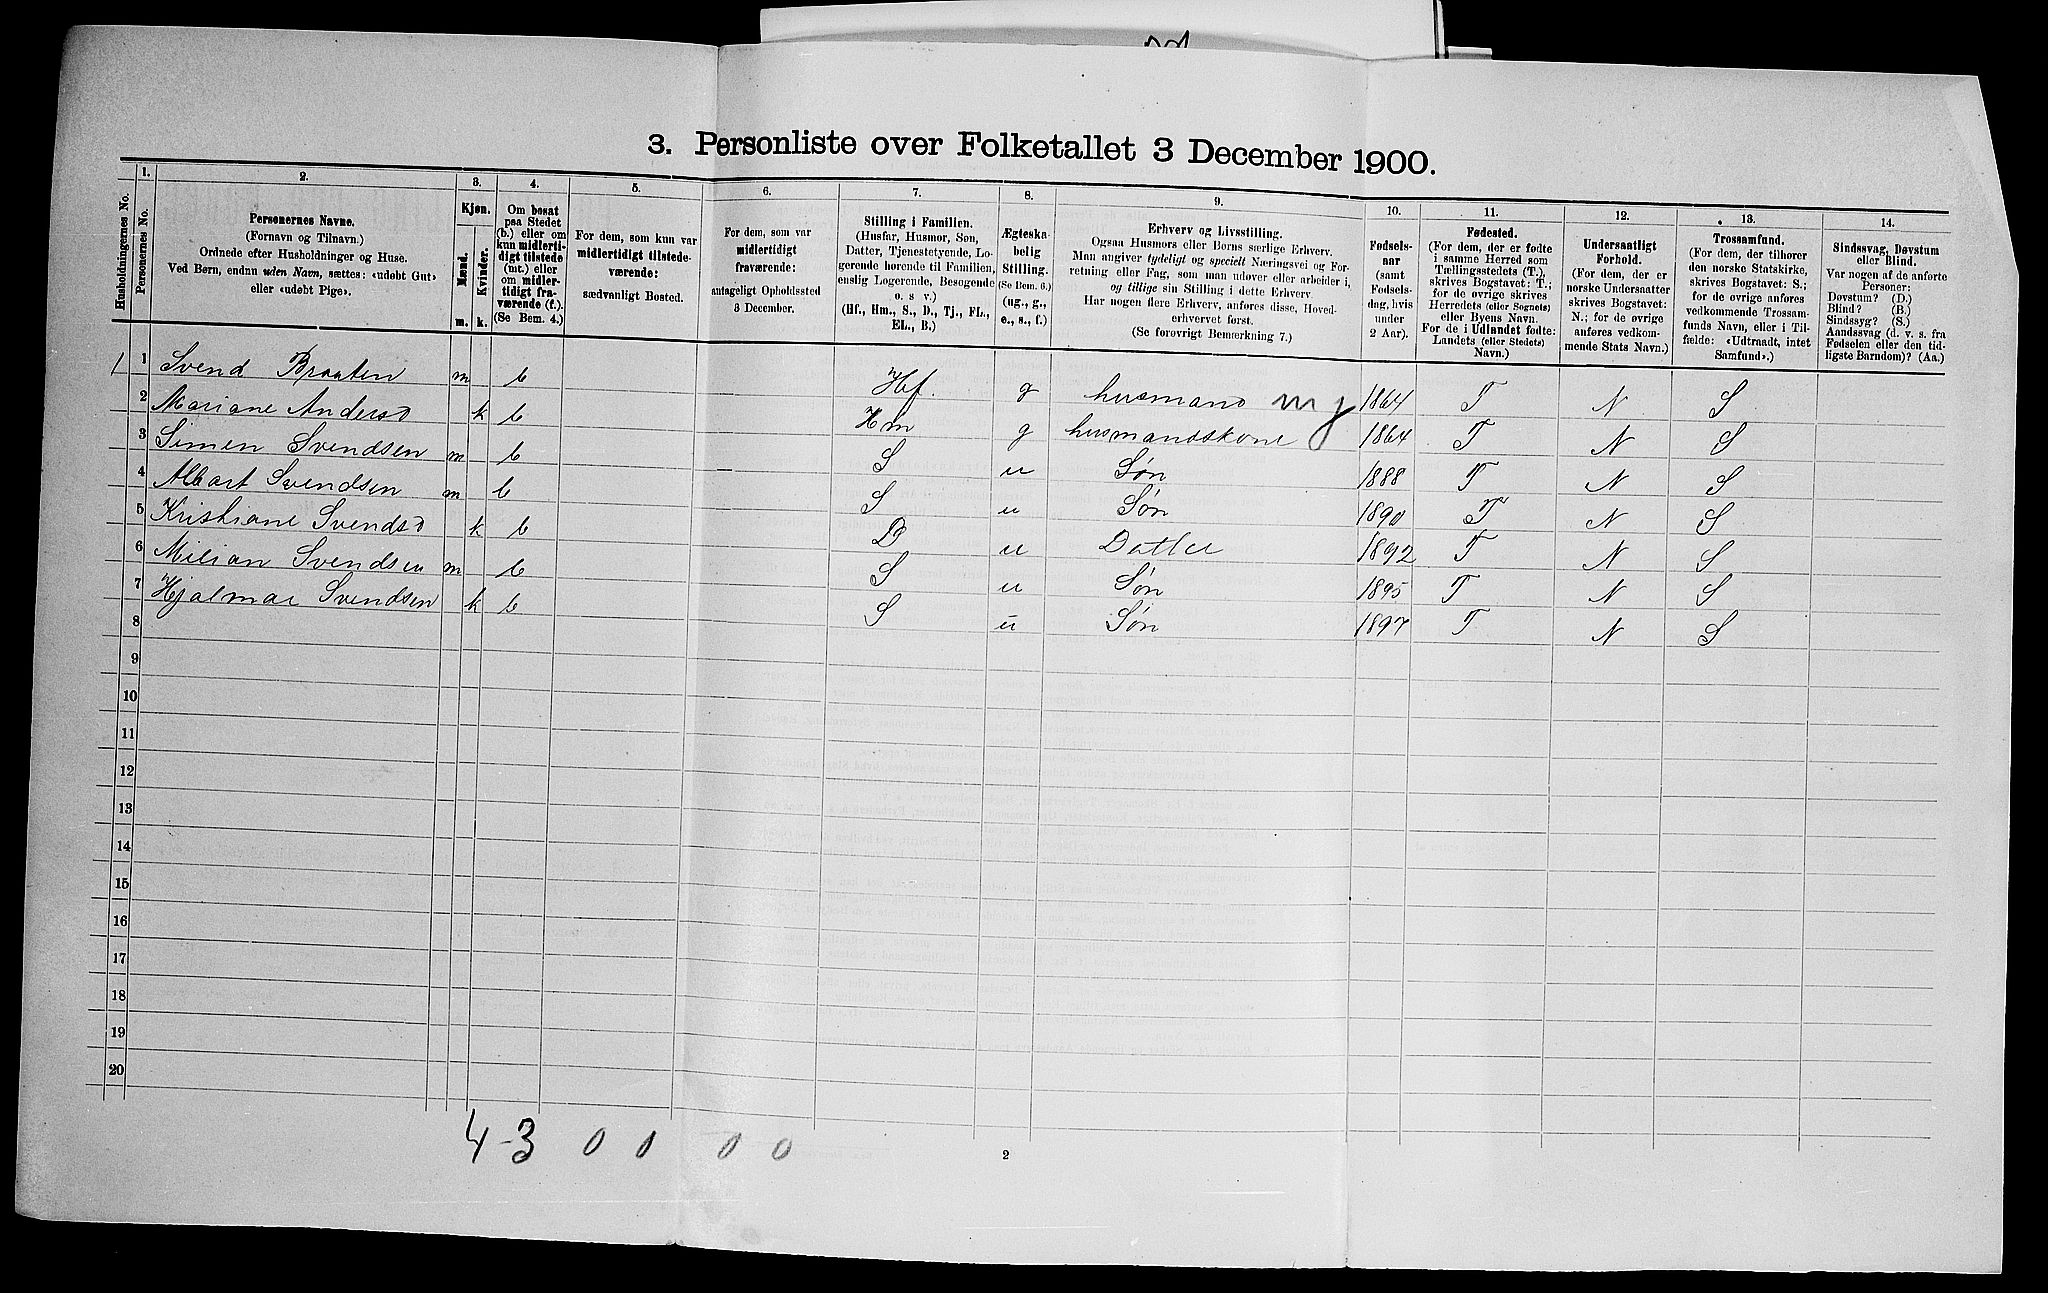 3. Personliste over Folketallet 3 December 1900.
Husholdningernes No.
1.
Personernes No.
2.
Personernes Navne.
(Fornavn og Tilnavn.)
Ordnede efter Husholdninger og Huse.
Ved Børn, endnu uden Navn, sættes: «udøbt Gut»
eller «udøbt Pige».
3.
Kjøn.
Mænd.
Kvinder.
m. k.
4.
Om bosat
paa Stedet
(b.) eller om
kun midlerti-
digt tilstede
(mt.) eller
om midler-
tidigt fra-
værende (f.).
(Se Bem. 4.)
5.
For dem, som kun var
midlertidigt tilstede-
værende:
sædvanligt Bosted.
6.
For dem, som var
midlertidigt
fraværende:
antageligt Opholdssted
3 December.
7.
Stilling i Familien.
(Husfar, Husmor, Søn,
Datter, Tjenestetyende, Lo-
gerende hørende til Familien,
enslig Logerende, Besøgende
o. s v.)
(Hf., Hm., S., D., Tj., FL.,
EL., B.)
8.
Ægteska-
belig
Stilling.
(Se Bem. 6.)
(ug., g.,
e., s., f.)
9.
Erhverv og Livsstilling.
Ogsaa Husmors eller Børns særlige Erhverv.
Man angiver tydeligt og specielt Næringsvei og For-
retning eller Fag, som man udøver eller arbeider i,
og tillige sin Stilling i dette Erhverv.
Har nogen flere Erhverv, anføres disse, Hoved-
erhvervet først.
(Se forøvrigt Bemærkning 7.)
10.
Fødsels-
aar
(samt
Fødsels-
dag, hvis
under
2 Aar).
11.
Fødested.
(For dem, der er fødte
i samme Herred som
Tællingsstedets (T.),
skrives Bogstavet: T.;
for de øvrige skrives
Herredets (eller Sognets)
eller Byens Navn.
For de i Udlandet fødte:
Landets (eller Stedets)
Navn.)
12.
Undersaatligt
Forhold.
(For dem, der er
norske Undersaatter
skrives Bogstavet:
N.; for de øvrige
anføres vedkom-
mende Stats Navn.)
13.
Trossamfund.
(For dem, der tilhører
den norske Statskirke,
skrives Bogstavet: S.;
for de øvrige anføres
vedkommende Trossam-
funds Navn, eller i Til-
fælde: «Udtraadt, intet
Samfund».)
14.
Sindssvag, Døvstum
eller Blind.
Var nogen af de anførte
Personer:
Døvstum? (D.)
Blind? (B.)
Sindssyg? (S.)
Aandssvag (d. v. s. fra
Fødselen eller den tid-
ligste Barndom)? (Aa.)
1 1 Svend Braaten m b Hf. g husmand 1864 T N S
2 Mariane Andersd k b Hm g husmandskone 1864 T N S
3 Simen Svendsen m b S u Søn 1888 T N S
4 Albart Svendsen m b S u Søn 1890 T N S
5 Kristiane Svendsd k b D u Datter 1892 T N S
6 Milian Svendsen m b S u Søn 1895 T N S
7 Hjalmar Svendsen k b S u Søn 1897 T N S
8
9
10
11
12
13
14
15
16
17
18
19
20
4-3 0 0 0 0
2